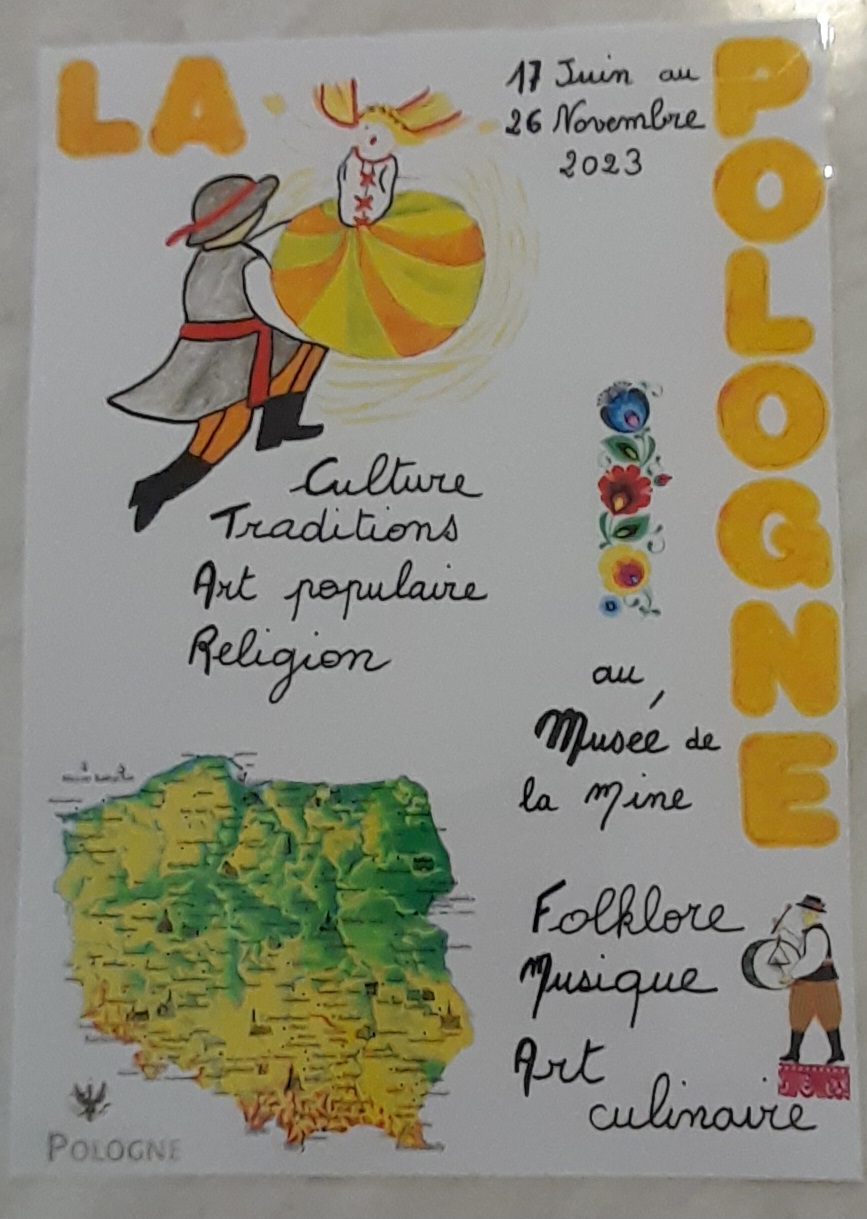 LA
POLOGNE
17 Juin au
26 Novembre
2023
Culture
Traditions
Art populaire
Religion
au
Musée de
la Mine
Folklore
Musique
Art
culinaire
POLOGNE